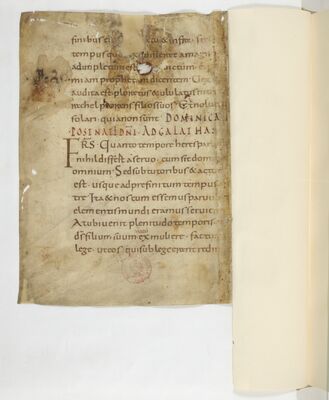 finibus
tempus quod a magi
adimpletum est
miam prophetam dicentem. Vox
audita est ploratus & ululatus
rachel plorans filios suos & nolu
solari. quia non sunt. DOMINICA
POST NAT DNI. AD GALATHAS
FRS Quanto tempore heres paru
nihil differt a seruo. cum sit dom
omnium Sed sub tutoribus & acto
est usque ad prefinitum tempus
tre Ita & nos cum essemus paruul
elementis mundi eramus seruien
At ubi uenit plenitudo tempori
ds filium suum ex muliere factu
lege. ut eos qui sub lege erant redi